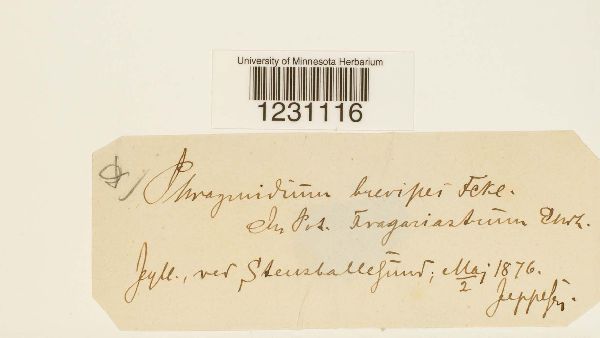 University of Minnesota Herbarium
1231116
Phragmidium brevipes Fckl.
In Pot. Fragariastrum Ehrh.
Jyll., ved Stensballesund; Maj 1876.
2
Jeppesen.